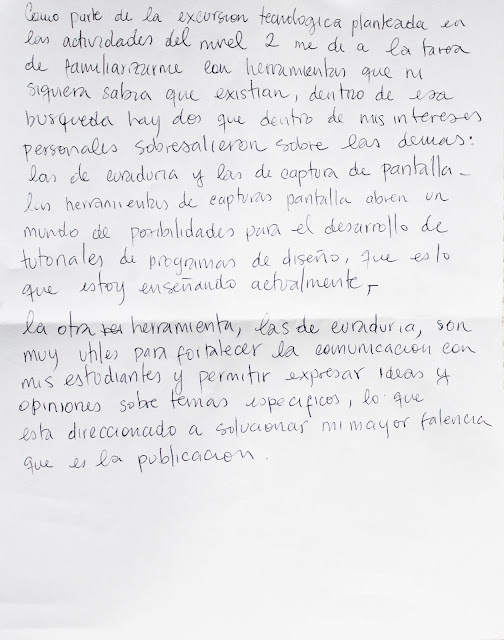 Como parte de la excursion tecnologica planteada en
las actividades del nivel 2 me di a la tarea
de familiarizarme con herramientas que ni
siquiera sabia que existian, dentro de esa
busqueda hay dos que dentro de mis intereses
personales sobresalieron sobre las demas:
las de curaduria y las de captura de pantalla.
las herramientas de capturas pantalla abren un
mundo de posibilidades para el desarrollo de
tutoriales de programas de diseño, que es lo
que estoy enseñando actualmente,
la otra herramienta, las de curaduria, son
muy utiles para fortalecer la comunicacion con
mis estudiantes y permitir expresar ideas y
opiniones sobre temas especificos, lo que
esta direccionado a solucionar mi mayor falencia
que es la publicacion.